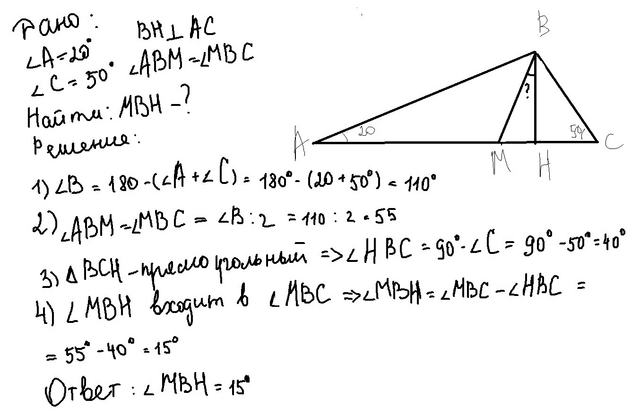 Дано:
BH⊥AC
∠A=20°
∠C=50° ∠ABM=∠MBC
Найти: MBH-?
Решение:
B
?
A
20
50
C
M
H
1) ∠B = 180-(∠A+∠C) = 180°-(20+50°) = 110°
2) ∠ABM=∠MBC = ∠B:2 = 110:2=55
3) ΔBCH-прямоугольный => ∠HBC = 90°-∠C = 90°-50°=40°
4) ∠MBH входит в ∠MBC => ∠MBH=∠MBC-∠HBC =
= 55°-40°=15°
Ответ: ∠MBH=15°